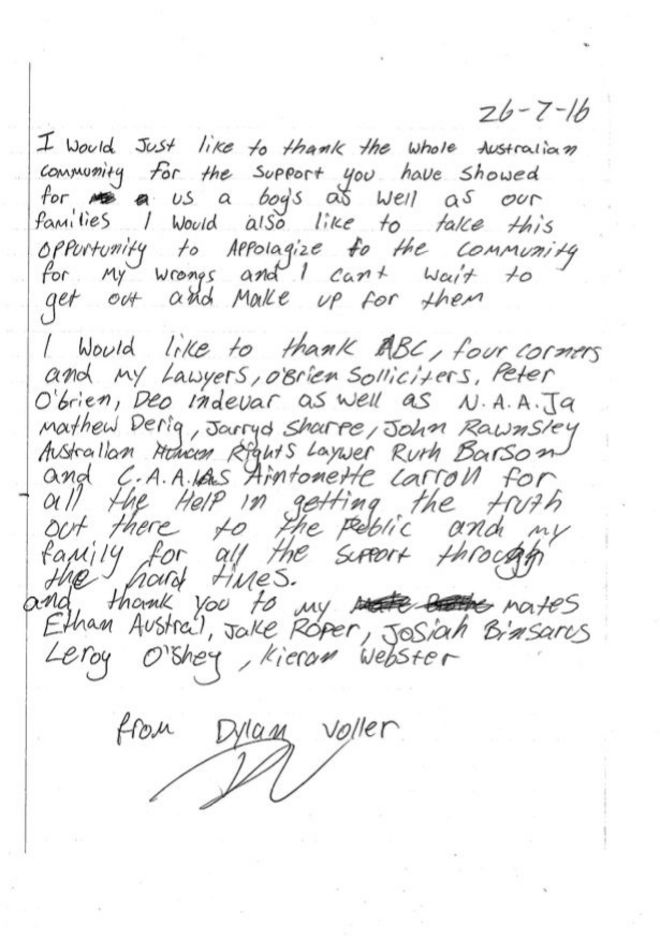 26-7-16
I would Just like to thank the whole Australian
community for the support you have showed
for a us a boys as well as our
families I would also like to take this
opportunity to Appolagize to the community
for my wrongs and I cant wait to
get out and make up for them
I would like to thank ABC, four corners
and my Lawyers, O'Brien Solliciters, Peter
O'brien, Deo indevar as well as N.A.A.Ja
Mathew Derig, Jarryd Sharpe, John Rawnsley
Australian Human Rights Laywer Ruth Barson
and C.A.A.LAS Aintonette Carroll for
all the Help in getting the truth
out there to the Public and my
family for all the support through
the hard times.
and thank you to my mates
Ethan Austral, Jake Roper, Josiah Binsarus
Leroy O'shey, Kieran Webster
from Dylan Voller